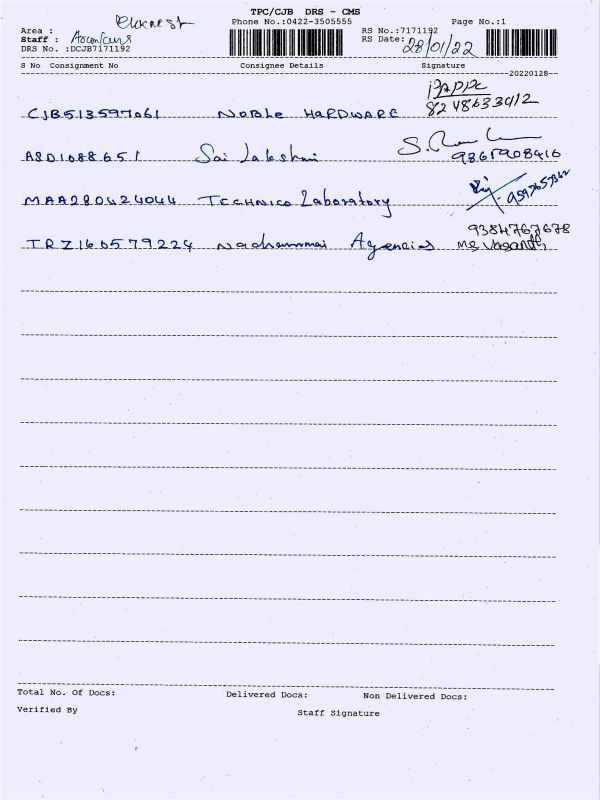 TPC/CJB DRS - CMS
Phone No.:0422-3505555 Page No.:1
Area :
Staff :
DRS No. :DCJB7171192
RS No.:7171192
RS Date: 28/01/22
S No Consignment No Consignee Details Signature
20220128
8248633012
CJB513597061 NOBLE HARDWARE
ASD1088651 Sai Lakshmi 9865908416
MAA280424044 TECHNICO Laboratory
9384767678
TRZ160579224 Nachammai Agencies MS Vasanth
Total No. Of Docs: Delivered Docs: Non Delivered Docs:
Verified By Staff Signature